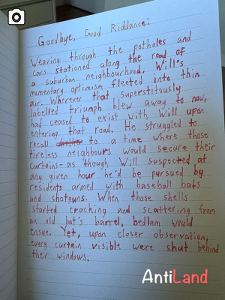 Goodbye, Good Riddance:
Weaving through the potholes and
cars stationed along the road of
a suburban neighbourhood, Will's
momentary optimism fleeted into thin
air. Wherever that superstitiously
labelled triumph blew away to now,
had ceased to exist with Will upon
entering that road. He struggled to
recall a time where those
tireless neighbours would secure their
curtains- as though Will suspected at
any given hour he'd be pursued by
residents armed with baseball bats
and shotguns. When those shells
started cracking and scattering from
an old bat's barrel, bedlam would
ensue. Yet, upon closer observation,
every curtain visible were shut behind
their windows.
AntiLand